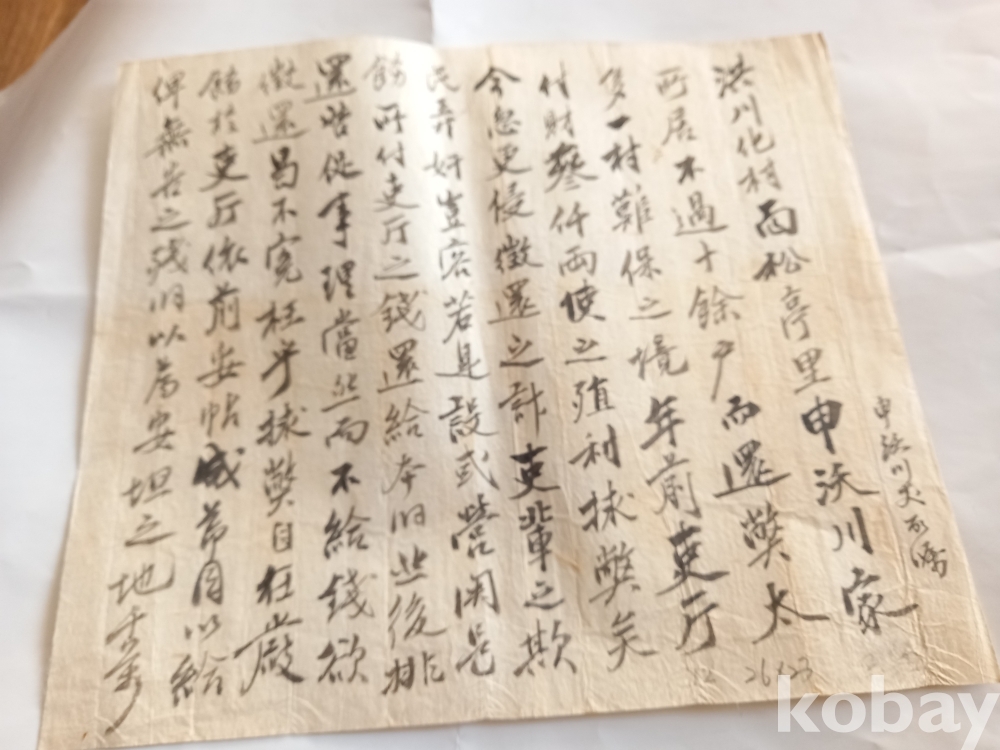 申沃川大宅
洪川化村面松亭里申沃川家
所居不過十餘戶而還弊太
多一村難保之境年前吏厅
付財叄仟兩使之殖利捄弊矣
今忽更侵徵還之計吏輩之欺
民弄奸豈容若是設或營関是
飭所付吏厅之錢還給本洞然後排
還皆從事理當然而不給錢欲
徵還曷不寃枉乎捄弊自在嚴
飭於吏厅依前安帖成節目以給
俾無若之殘洞以為安坦之地
kobay